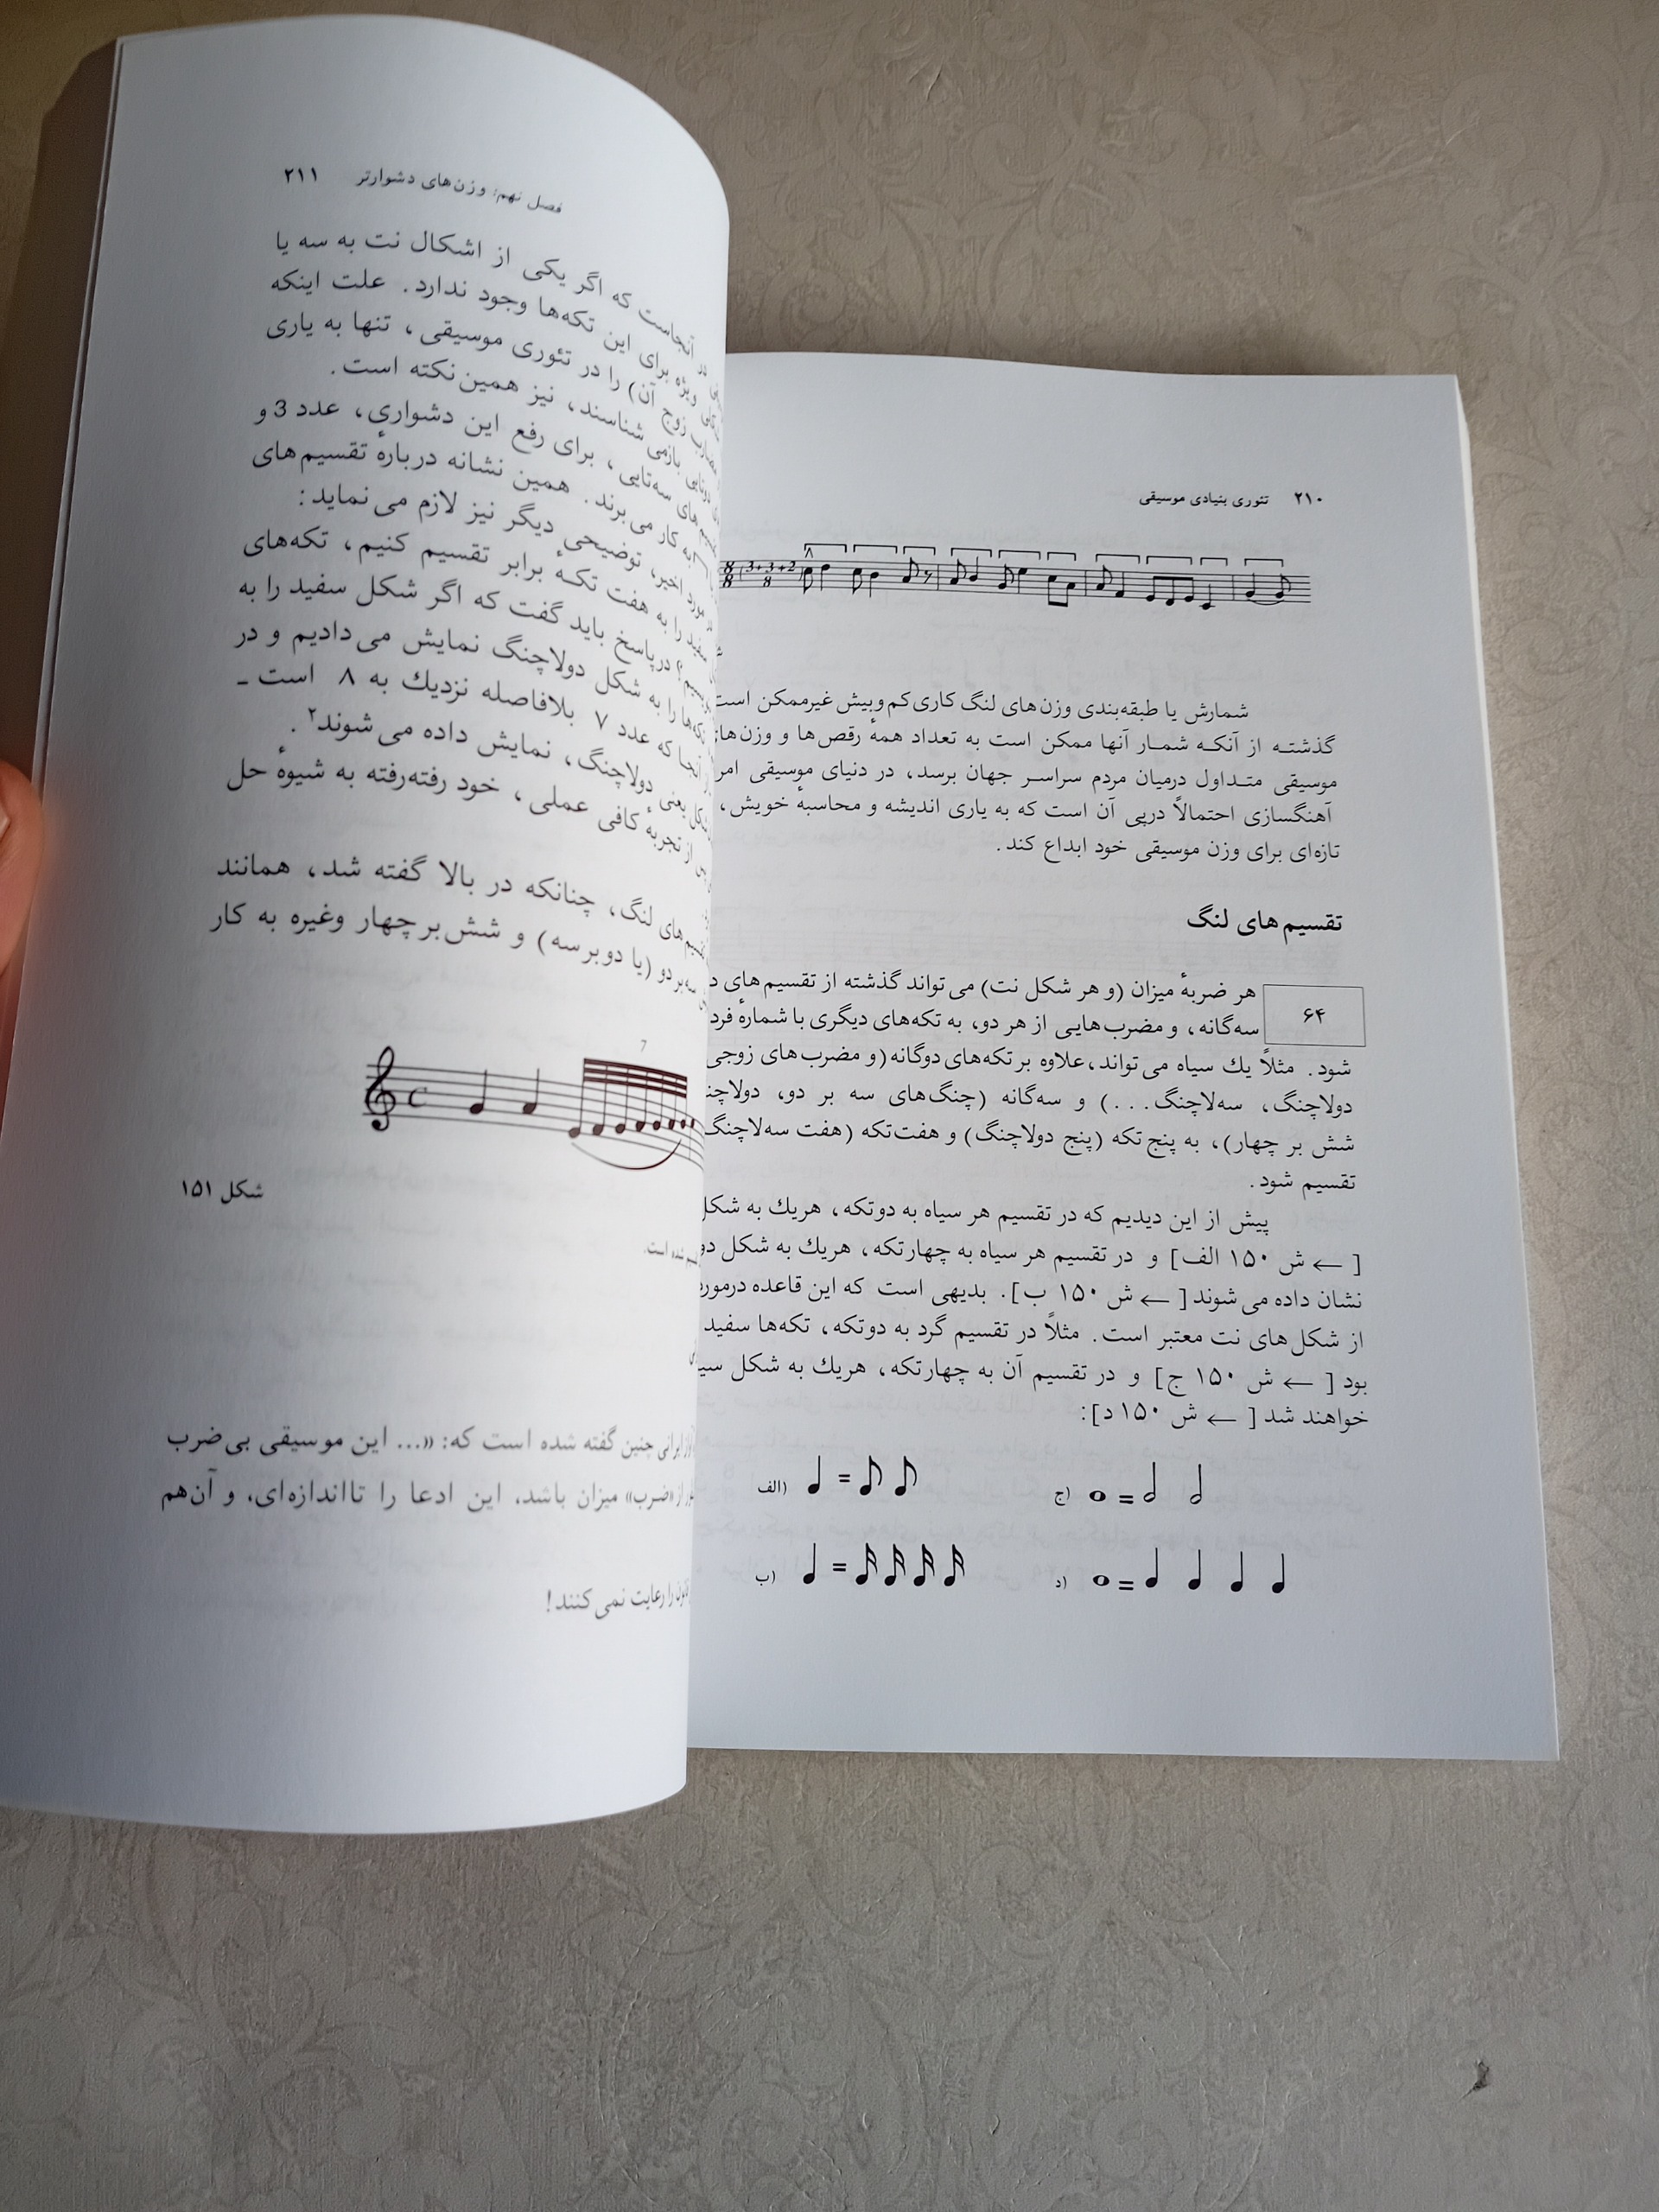 ۲۱۰ تئوری بنیادی موسیقی
8 8 3+3+2 8
شمارش یا طبقه‌بندی وزن‌های لنگ کاری کم‌وبیش غیرممکن است
گذشته از آنکه شمار آنها ممکن است به تعداد همهٔ رقص‌ها و
موسیقی متداول درمیان مردم سراسر جهان برسد، در دنیای موسیقی
آهنگسازی احتمالاً درپی آن است که به یاری اندیشه و محاسبهٔ خویش،
تازه‌ای برای وزن موسیقی خود ابداع کند.
تقسیم‌های لنگ
۶۴
هر ضربهٔ میزان (و هر شکل نت) می‌تواند گذشته از تقسیم‌های
سه‌گانه، و مضرب‌هایی از هر دو، به تکه‌های دیگری با شمارهٔ فرد
شود. مثلاً یك سیاه می‌تواند، علاوه بر تکه‌های دوگانه (و مضرب‌های زوجی
دولاچنگ، سه‌لاچنگ...) و سه‌گانه (چنگ‌های سه بر دو،
شش بر چهار)، به پنج تکه (پنج دولاچنگ) و هفت تکه (هفت سه‌لاچنگ
تقسیم شود.
پیش از این دیدیم که در تقسیم هر سیاه به دوتکه، هریك به شکل
[← ش ۱۵۰ الف] و در تقسیم هر سیاه به چهارتکه، هریك به شکل
نشان داده می‌شوند [← ش ۱۵۰ ب]. بدیهی است که این قاعده درمورد
از شکل‌های نت معتبر است. مثلاً در تقسیم گرد به دوتکه، تکه‌ها سفید
بود [← ش ۱۵۰ ج] و در تقسیم آن به چهارتکه، هریك به شکل
خواهند شد [← ش ۱۵۰ د]:
الف) =
ج) =
ب) =
د) =
فصل نهم: وزن‌های دشوارتر ۲۱۱
آنجاست که اگر یکی از اشکال نت به سه یا
ویژه برای این تکه‌ها وجود ندارد. علت اینکه
زوج آن) را در تئوری موسیقی، تنها به یاری
بازمی‌شناسند، نیز همین نکته است.
های سه‌تایی، برای رفع این دشواری، عدد 3 و
به کار می‌برند. همین نشانه دربارهٔ تقسیم‌های
اخیر، توضیحی دیگر نیز لازم می‌نماید:
سفید را به هفت تکهٔ برابر تقسیم کنیم، تکه‌های
درپاسخ باید گفت که اگر شکل سفید را به
را به شکل دولاچنگ نمایش می‌دادیم و در
آنجا که عدد ۷ بلافاصله نزدیك به ۸ است ـ
یعنی دولاچنگ، نمایش داده می‌شوند۲.
از تجربهٔ کافی عملی، خود رفته‌رفته به شیوهٔ حل
های لنگ، چنانکه در بالا گفته شد، همانند
دو (یا دوبرسه) و شش‌بر‌چهار وغیره به کار
7
شکل ۱۵۱
شده است.
ایرانی چنین گفته شده است که: «... این موسیقی بی‌ضرب
از «ضرب» میزان باشد، این ادعا را تااندازه‌ای، و آن‌هم
را رعایت نمی‌کنند!